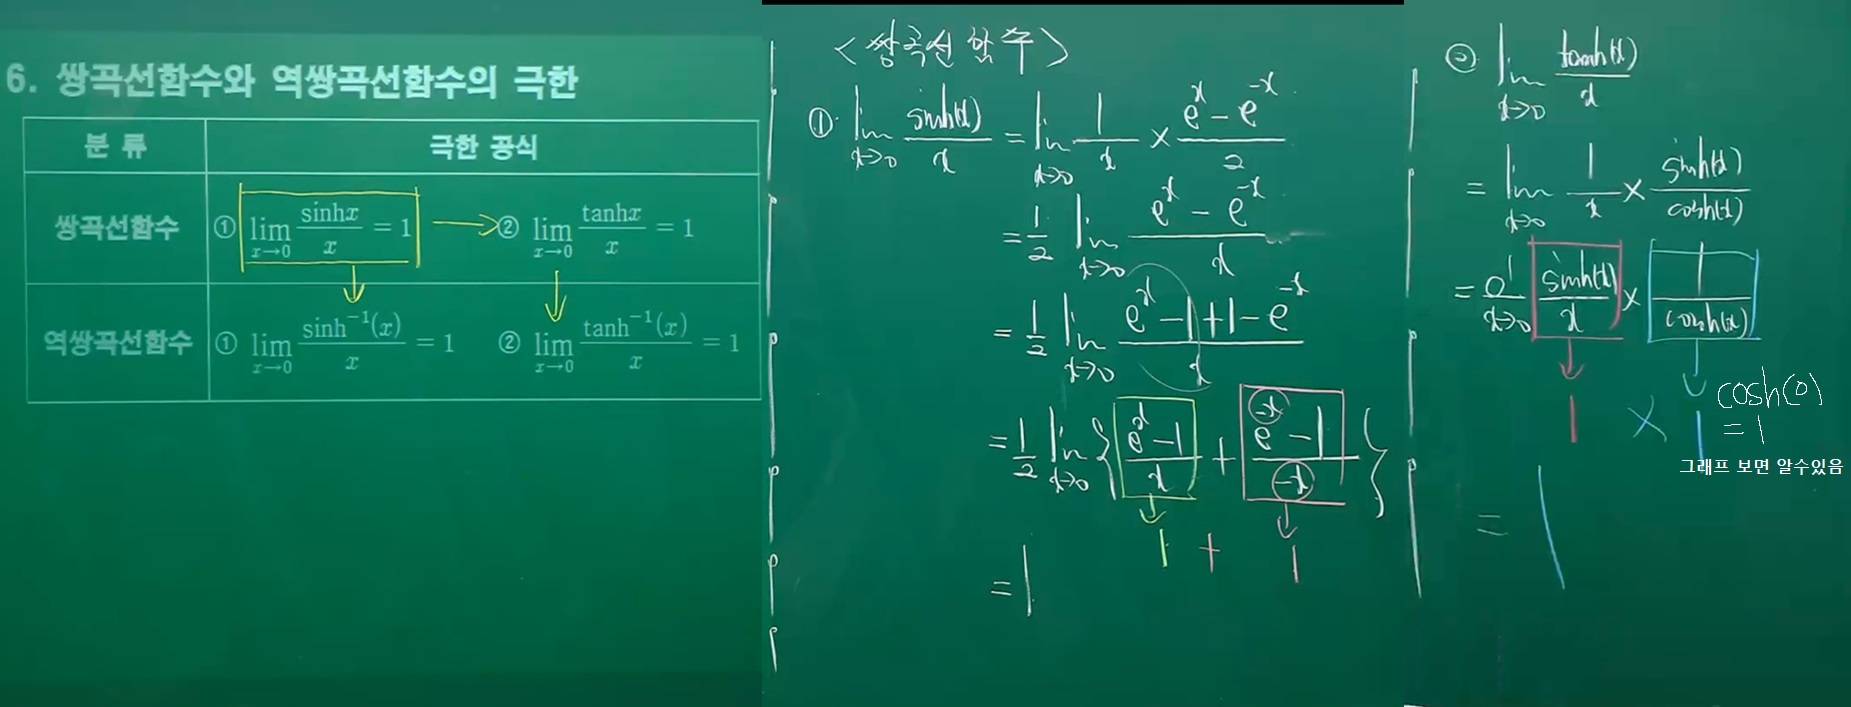 6. 쌍곡선함수와 역쌍곡선함수의 극한
분 류 극한 공식
쌍곡선함수 ① lim x→0 sinhx/x = 1 → ② lim x→0 tanhx/x = 1
역쌍곡선함수 ① lim x→0 sinh⁻¹(x)/x = 1 ② lim x→0 tanh⁻¹(x)/x = 1
<쌍곡선 함수>
① lim x→0 sinh(x)/x = lim x→0 1/x × (e^x − e^−x)/2
= 1/2 lim x→0 (e^x − e^−x)/x
= 1/2 lim x→0 (e^x − 1 + 1 − e^−x)/x
= 1/2 lim x→0 { (e^x − 1)/x + (e^−x − 1)/−x }
1 + 1
= 1
② lim x→0 tanh(x)/x
= lim x→0 1/x × sinh(x)/cosh(x)
= lim x→0 sinh(x)/x × 1/cosh(x)
1 × 1
cosh(0)
= 1
그래프 보면 알수있음
= 1